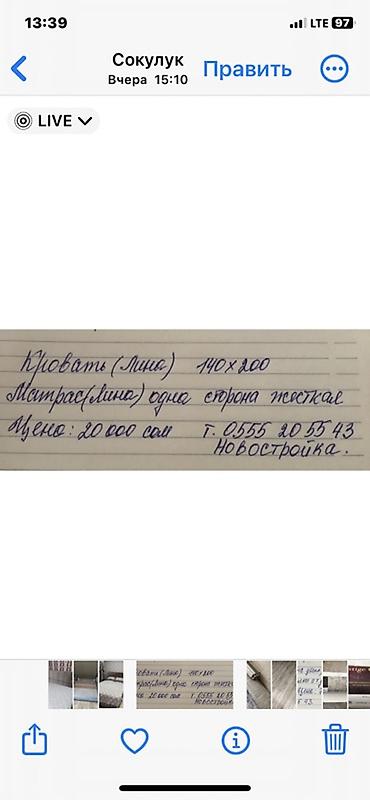 13:39
LTE 97
Сокулук
Вчера 15:10
Править
LIVE
Кровать (Лина) 140×200
Матрас (Лина) одна сторона жесткая
Цена: 20 000 сом т. 0555 20 55 43
Новостройка.